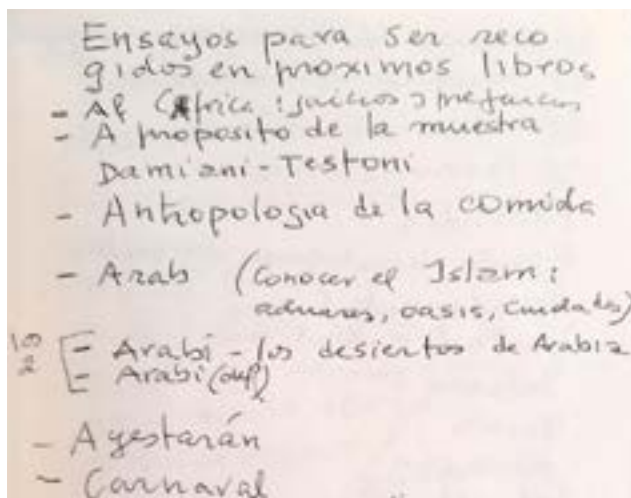 Ensayos para ser reco
gidos en proximos libros
- Af (Africa: juicios
- A proposito de la muestra
Damiani-Testoni
- Antropologia de la comida
- Arab (conocer el Islam:
aduares, oasis, ciudades)
- Arabi - los desiertos de Arabia
- Arabi (def)
- Ayestarán
- Carnaval